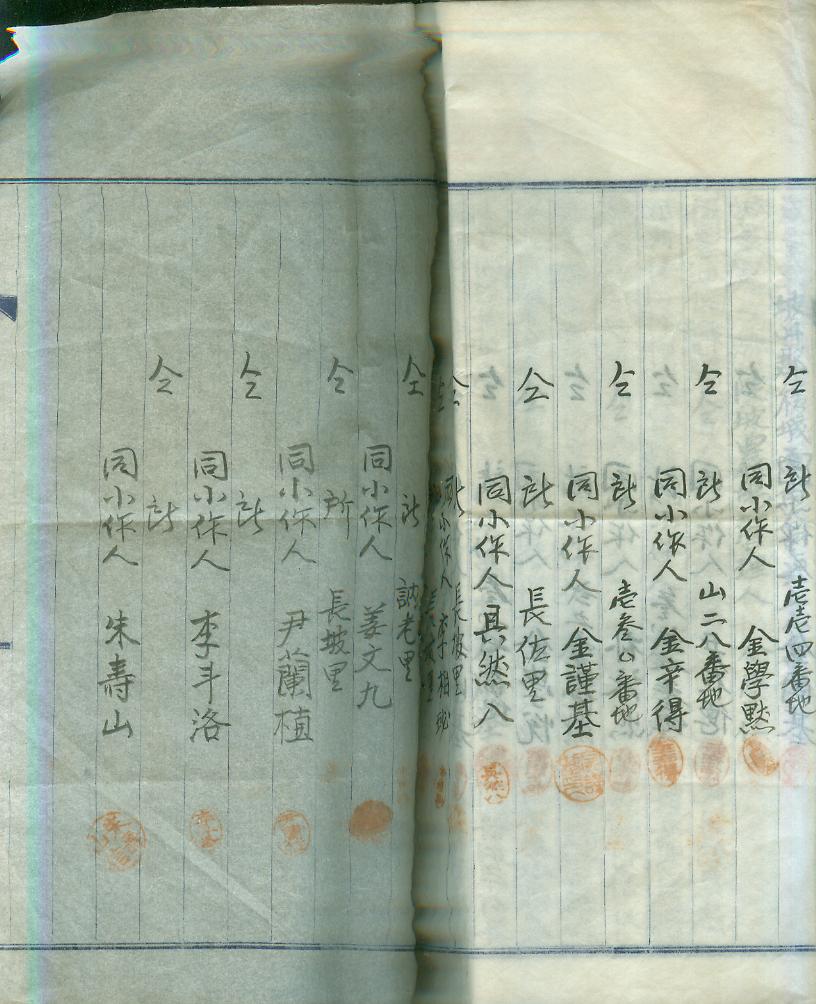 仝 所 壱壱四番地
同小作人 金學黙
仝 所 山二八番地
同小作人 金辛得
仝 所 壱参〇番地
同小作人 金謹基
仝 所 長佐里
同小作人 具然八
仝 所 長坡里
同小作人
仝 所 訥老里
同小作人 姜文九
仝 所 長坡里
同小作人 尹蘭植
仝 所
同小作人 李斗洛
仝 所
同小作人 朱壽山